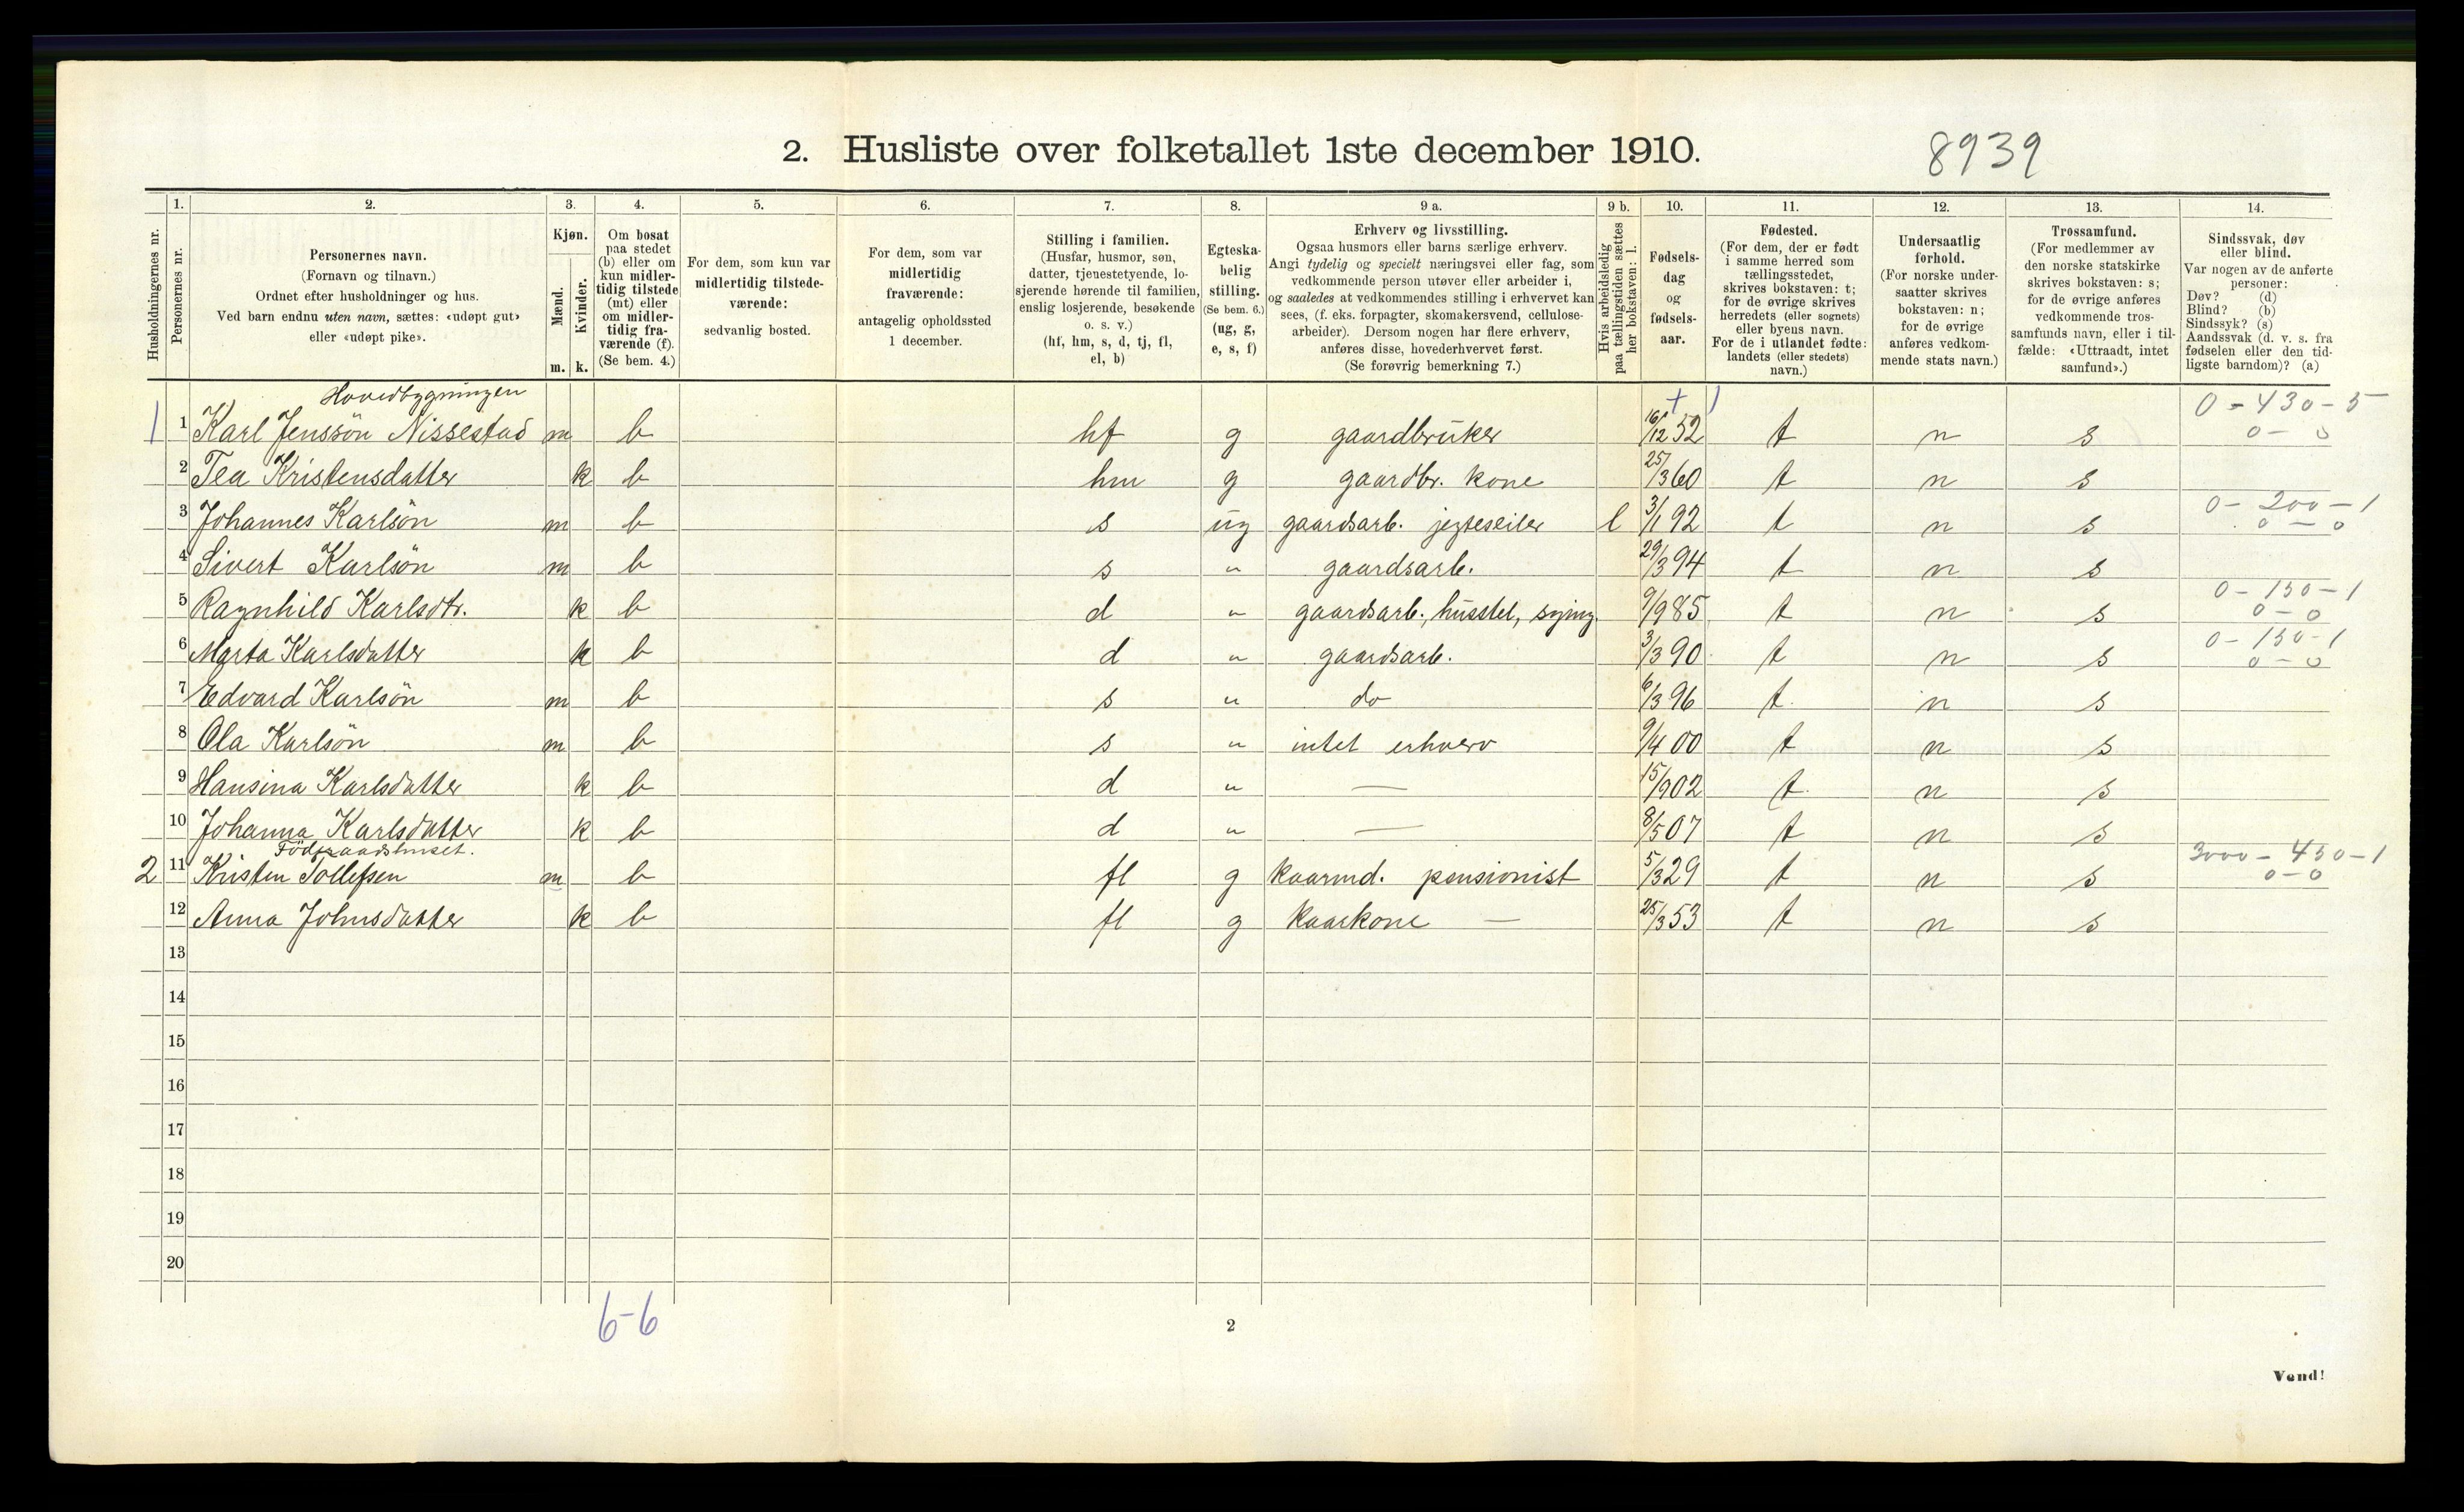 2. Husliste over folketallet 1ste december 1910.
8939
1. 2. 3. 4. 5. 6. 7. 8. 9 a. 9 b. 10. 11. 12. 13. 14.
Husholdningernes nr.
Personernes nr.
Personernes navn.
(Fornavn og tilnavn.)
Ordnet efter husholdninger og hus.
Ved barn endnu uten navn, sættes: «udøpt gut»
eller «udøpt pike».
Kjøn.
Mænd.
Kvinder.
m. k.
Om bosat
paa stedet
(b) eller om
kun midler-
tidig tilstede
(mt) eller
om midler-
tidig fra-
værende (f).
(Se bem. 4.)
For dem, som kun var
midlertidig tilstede-
værende:
sedvanlig bosted.
For dem, som var
midlertidig
fraværende:
antagelig opholdssted
1 december.
Stilling i familien.
(Husfar, husmor, søn,
datter, tjenestetyende, lo-
sjerende hørende til familien,
enslig losjerende, besøkende
o. s. v.)
(hf, hm, s, d, tj, fl,
el, b)
Egteska-
belig
stilling.
(Se bem. 6.)
(ug, g,
e, s, f)
Erhverv og livsstilling.
Ogsaa husmors eller barns særlige erhverv.
Angi tydelig og specielt næringsvei eller fag, som
vedkommende person utøver eller arbeider i,
og saaledes at vedkommendes stilling i erhvervet kan
sees, (f. eks. forpagter, skomakersvend, cellulose-
arbeider). Dersom nogen har flere erhverv,
anføres disse, hovederhvervet først.
(Se forøvrig bemerkning 7.)
Hvis arbeidsledig
paa tællingstiden sættes
her bokstaven: l.
Fødsels-
dag
og
fødsels-
aar.
Fødested.
(For dem, der er født
i samme herred som
tællingsstedet,
skrives bokstaven: t;
for de øvrige skrives
herredets (eller sognets)
eller byens navn.
For de i utlandet fødte:
landets (eller stedets)
navn.)
Undersaatlig
forhold.
(For norske under-
saatter skrives
bokstaven: n;
for de øvrige
anføres vedkom-
mende stats navn.)
Trossamfund.
(For medlemmer av
den norske statskirke
skrives bokstaven: s;
for de øvrige anføres
vedkommende tros-
samfunds navn, eller i til-
fælde: «Uttraadt, intet
samfund».)
Sindssvak, døv
eller blind.
Var nogen av de anførte
personer:
Døv? (d)
Blind? (b)
Sindssyk? (s)
Aandssvak (d. v. s. fra
fødselen eller den tid-
ligste barndom)? (a)
Hovedbygningen + 1 0-430-5
1 1 Karl Jenssön Nissestad m b hf g gaardbruker 16/12 52 t n s
2 Tea Kristensdatter k b hm g gaardbr. kone 25/3 60 t n s
0-200-1
3 Johannes Karlsön m b s ug gaardsarb. jegteseiler l 3/1 92 t n s 0-0
4 Sivert Karlsön m b s " gaardsarb. 29/3 94 t n s
0-150-1
5 Ragnhild Karlsdtr. k b d " gaardsarb., husstel, sying. 9/9 85 t n s 0-0
0-150-1
6 Marta Karlsdatter k b d " gaardsarb. 3/3 90 t n s 0-0
7 Edvard Karlsön m b s " do 6/3 96 t n s
8 Ola Karlsön m b s " intet erhverv 9/4 00 t n s
9 Hansina Karlsdatter k b d " — 15/9 02 t n s
10 Johanna Karlsdatter k b d " — 8/5 07 t n s
Födraadshuset. 3000-450-1
2 11 Kristen Tollefsen m b fl g kaarmd. pensionist 5/3 29 t n s 0-0
12 Anna Johnsdatter k b fl g Kaarkone — 25/3 53 t n s
13
14
15
16
17
18
19
20
6-6
2
Vend!